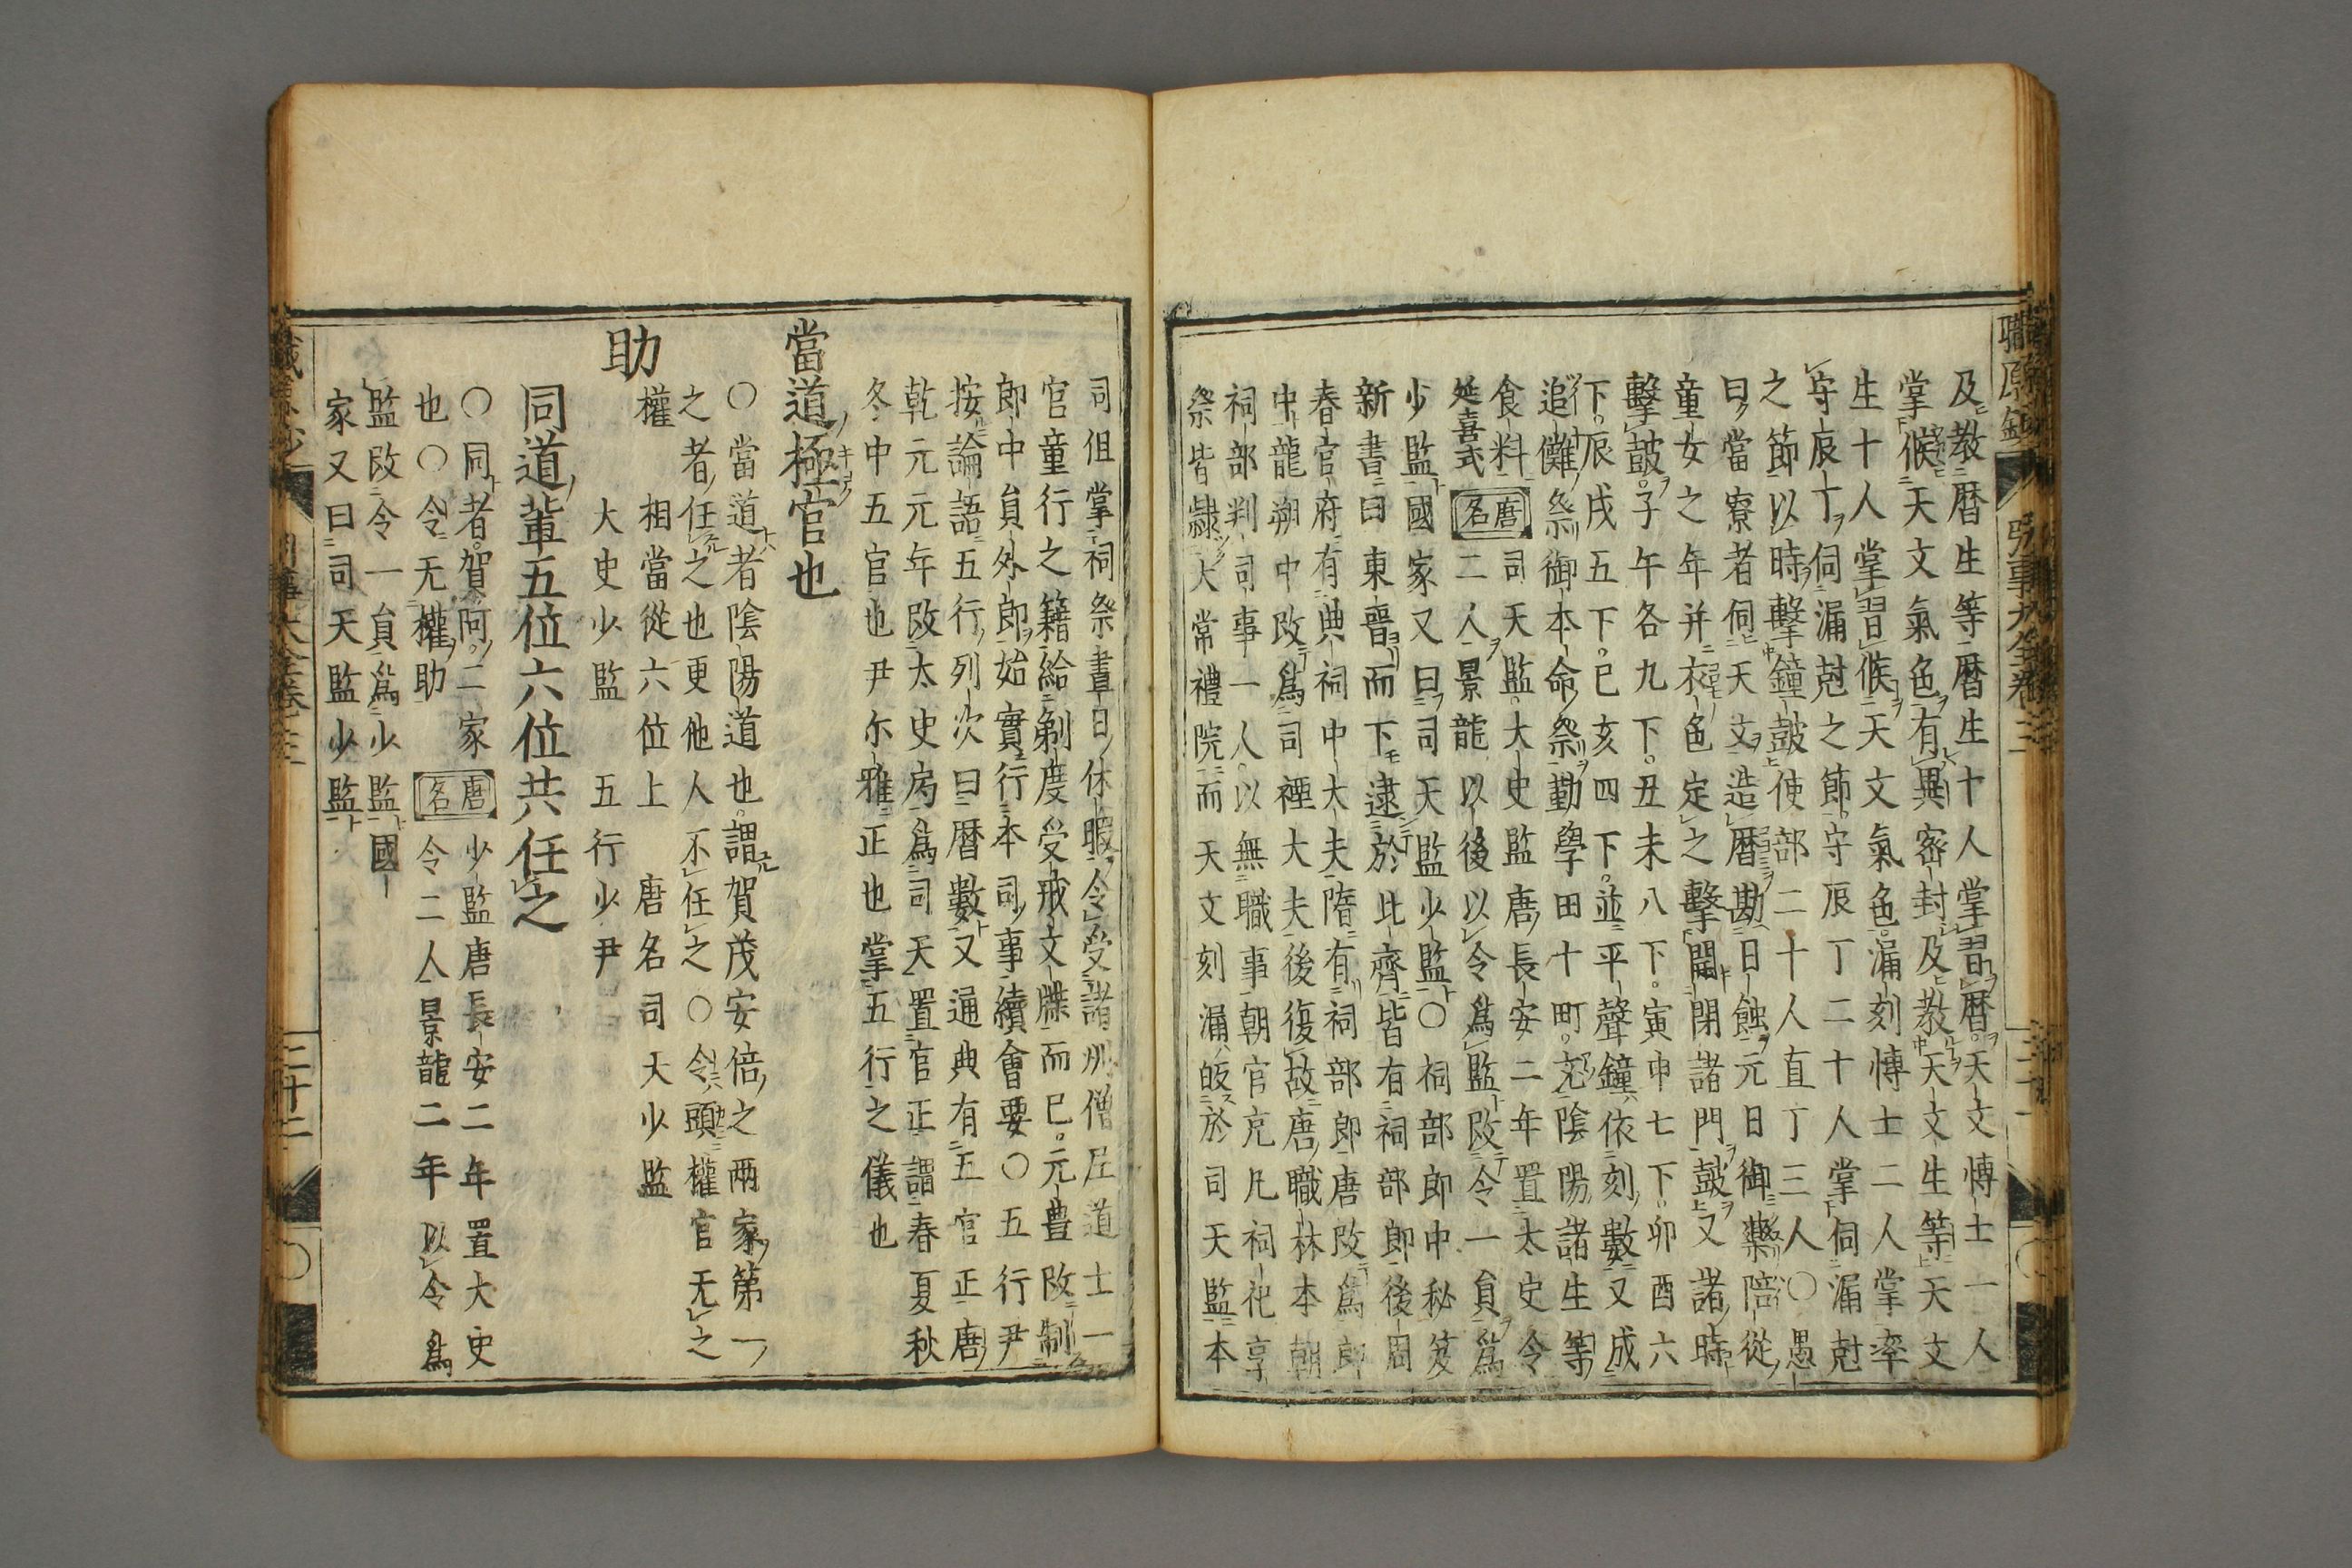 及教暦生等暦生十人掌習暦天文博士一人
掌候天文氣色有異密封及教天文生等天文
生十人掌習候天文氣色漏刻博士二人掌率
守辰丁伺漏尅之節守辰丁二十人掌伺漏尅
之節以時擊鐘鼓使部二十人直丁三人〇愚
曰當寮者伺天文造暦勘日蝕元日御藥陪從
童女之年并衣色定之擊開閉諸門鼓又諸時
擊鼓子午各九下丑未八下寅申七下卯酉六
下辰戌五下巳亥四下並平聲鐘依刻數又成
追儺祭御本命祭勤學田十町充陰陽諸生等
食料司天監大史監唐長安二年置太史令
延喜式 唐名 二人景龍以後以令爲監改令一員爲
少監國家又曰司天監少監〇祠部郎中秘笈
新書曰東晉而下逮於北齊皆有祠部郎後周
春官府有典祠中大夫隋有祠部郎唐改爲郎
中龍朔中改爲司禋大夫後復故唐職林本朝
祠部判司事一人以無職事朝官充凡祠祀享
祭皆隷大常禮院而天文刻漏皈於司天監本
司但掌祠祭晝日休暇令受諸州僧尼道士一
官童行之籍給剃度受戒文牒而已元豊改制
郎中員外郎始實行本司事續會要〇五行尹
按論語五行列次曰暦數又通典有五官正唐
乾元元年改太史局爲司天置官正謂春夏秋
冬中五官也尹尓雅正也掌五行之儀也
當道極官也
〇當道者陰陽道也謂賀茂安倍之兩家第一
之者任之也更他人不任之〇令頭權官无之
權 相當從六位上 唐名司天少監
助 大史少監 五行少尹
同道輩五位六位共任之
〇同者賀阿二家 唐名 少監唐長安二年置大史
也〇令无權助 令二人景龍二年以令爲
監改令一員爲少監國
家又曰司天監少監